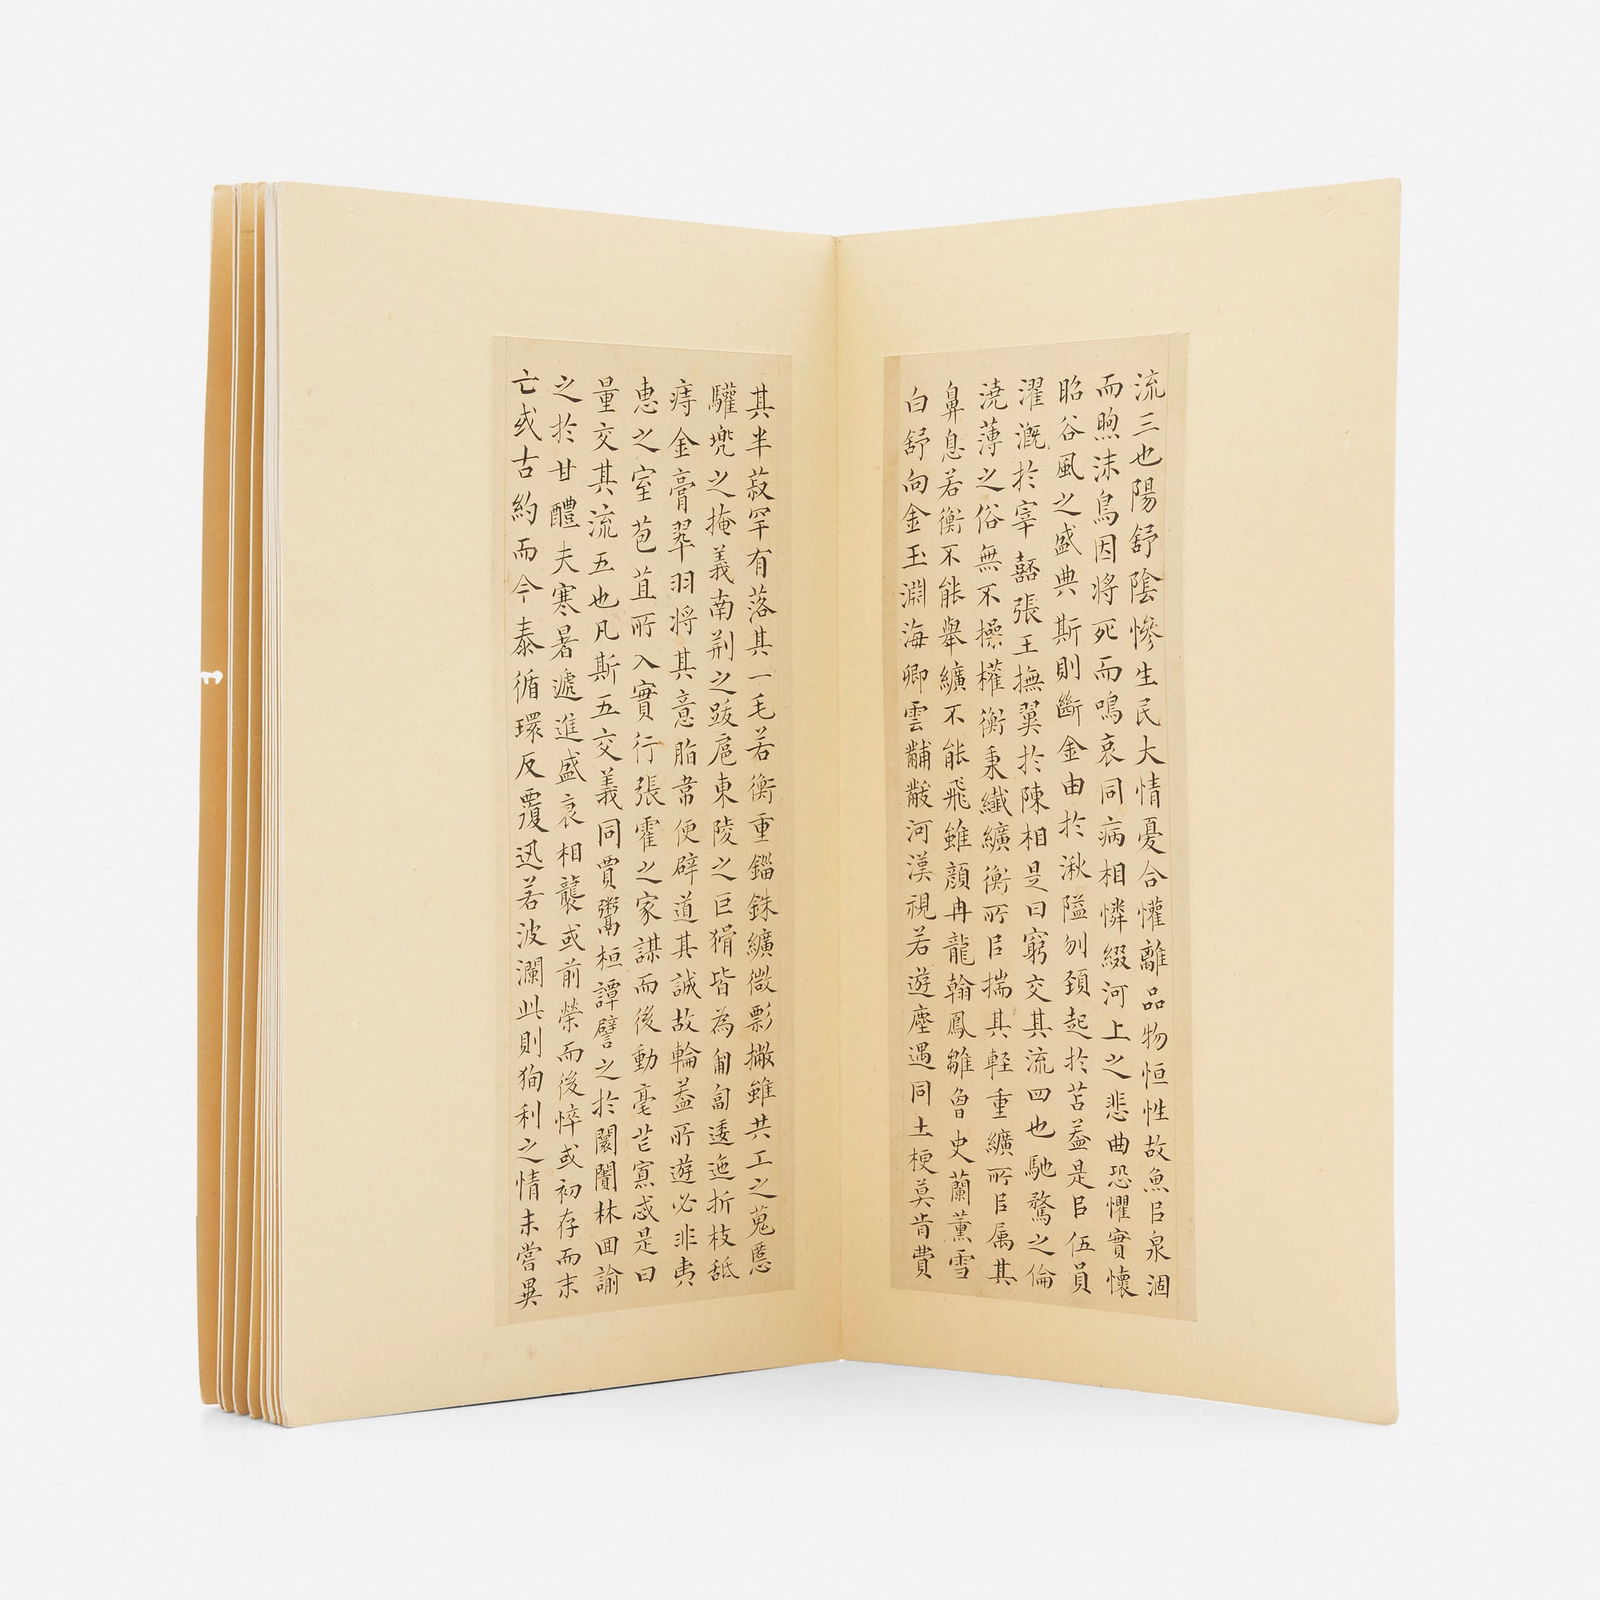 流三也陽舒陰慘生民大情憂合懽離品物恒性故魚㠯泉涸
而煦沫鳥因將死而鳴哀同病相憐綴河上之悲曲恐懼實懷
昭谷風之盛典斯則斷金由於湫隘刎頸起於苫蓋是㠯伍員
濯溉於宰嚭張王撫翼於陳相是曰窮交其流四也馳騖之倫
澆薄之俗無不操權衡秉纖纊衡所㠯揣其輕重纊所㠯属其
鼻息若衡不能舉纊不能飛雖顏冉龍翰鳳雛曾史蘭薰雪
白舒向金玉淵海卿雲黼黻河漢視若遊塵遇同土梗莫肯費
其半菽罕有落其一毛若衡重錙銖纊微影撇雖共工之蒐慝
驩兜之掩義南荊之跋扈東陵之巨猾皆為匍匐逶迤折枝舐
痔金膏翠羽將其意脂韋便辟道其誠故輪蓋所遊必非夷
惠之室苞苴所入實行張霍之家謀而後動毫芒寡忒是曰
量交其流五也凡斯五交義同賈鬻桓譚譬之於闤闠林回諭
之於甘醴夫寒暑遞進盛衰相襲或前榮而後悴或初存而末
亡或古約而今泰循環反覆迅若波瀾此則狥利之情未嘗異